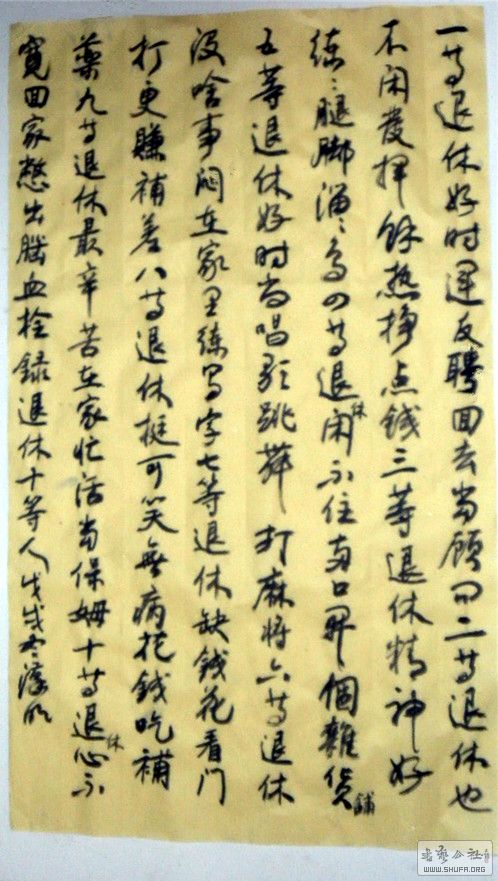 一等退休好时运反聘回去当顾问二等退休也
不闲发挥餘热挣点钱三等退休精神好
练练腿脚溜溜鸟四等退休闲不住当口开個雜货鋪
五等退休好时尚唱歌跳舞打麻将六等退休
没啥事闷在家里练写字七等退休缺錢花看门
打更賺補差八等退休挺可笑無病花錢吃補
藥九等退休最辛苦在家忙活当保姆十等退休心不
寬回家憋出腦血栓錄退休十等人戊戌冬
WWW.SHUFA.ORG